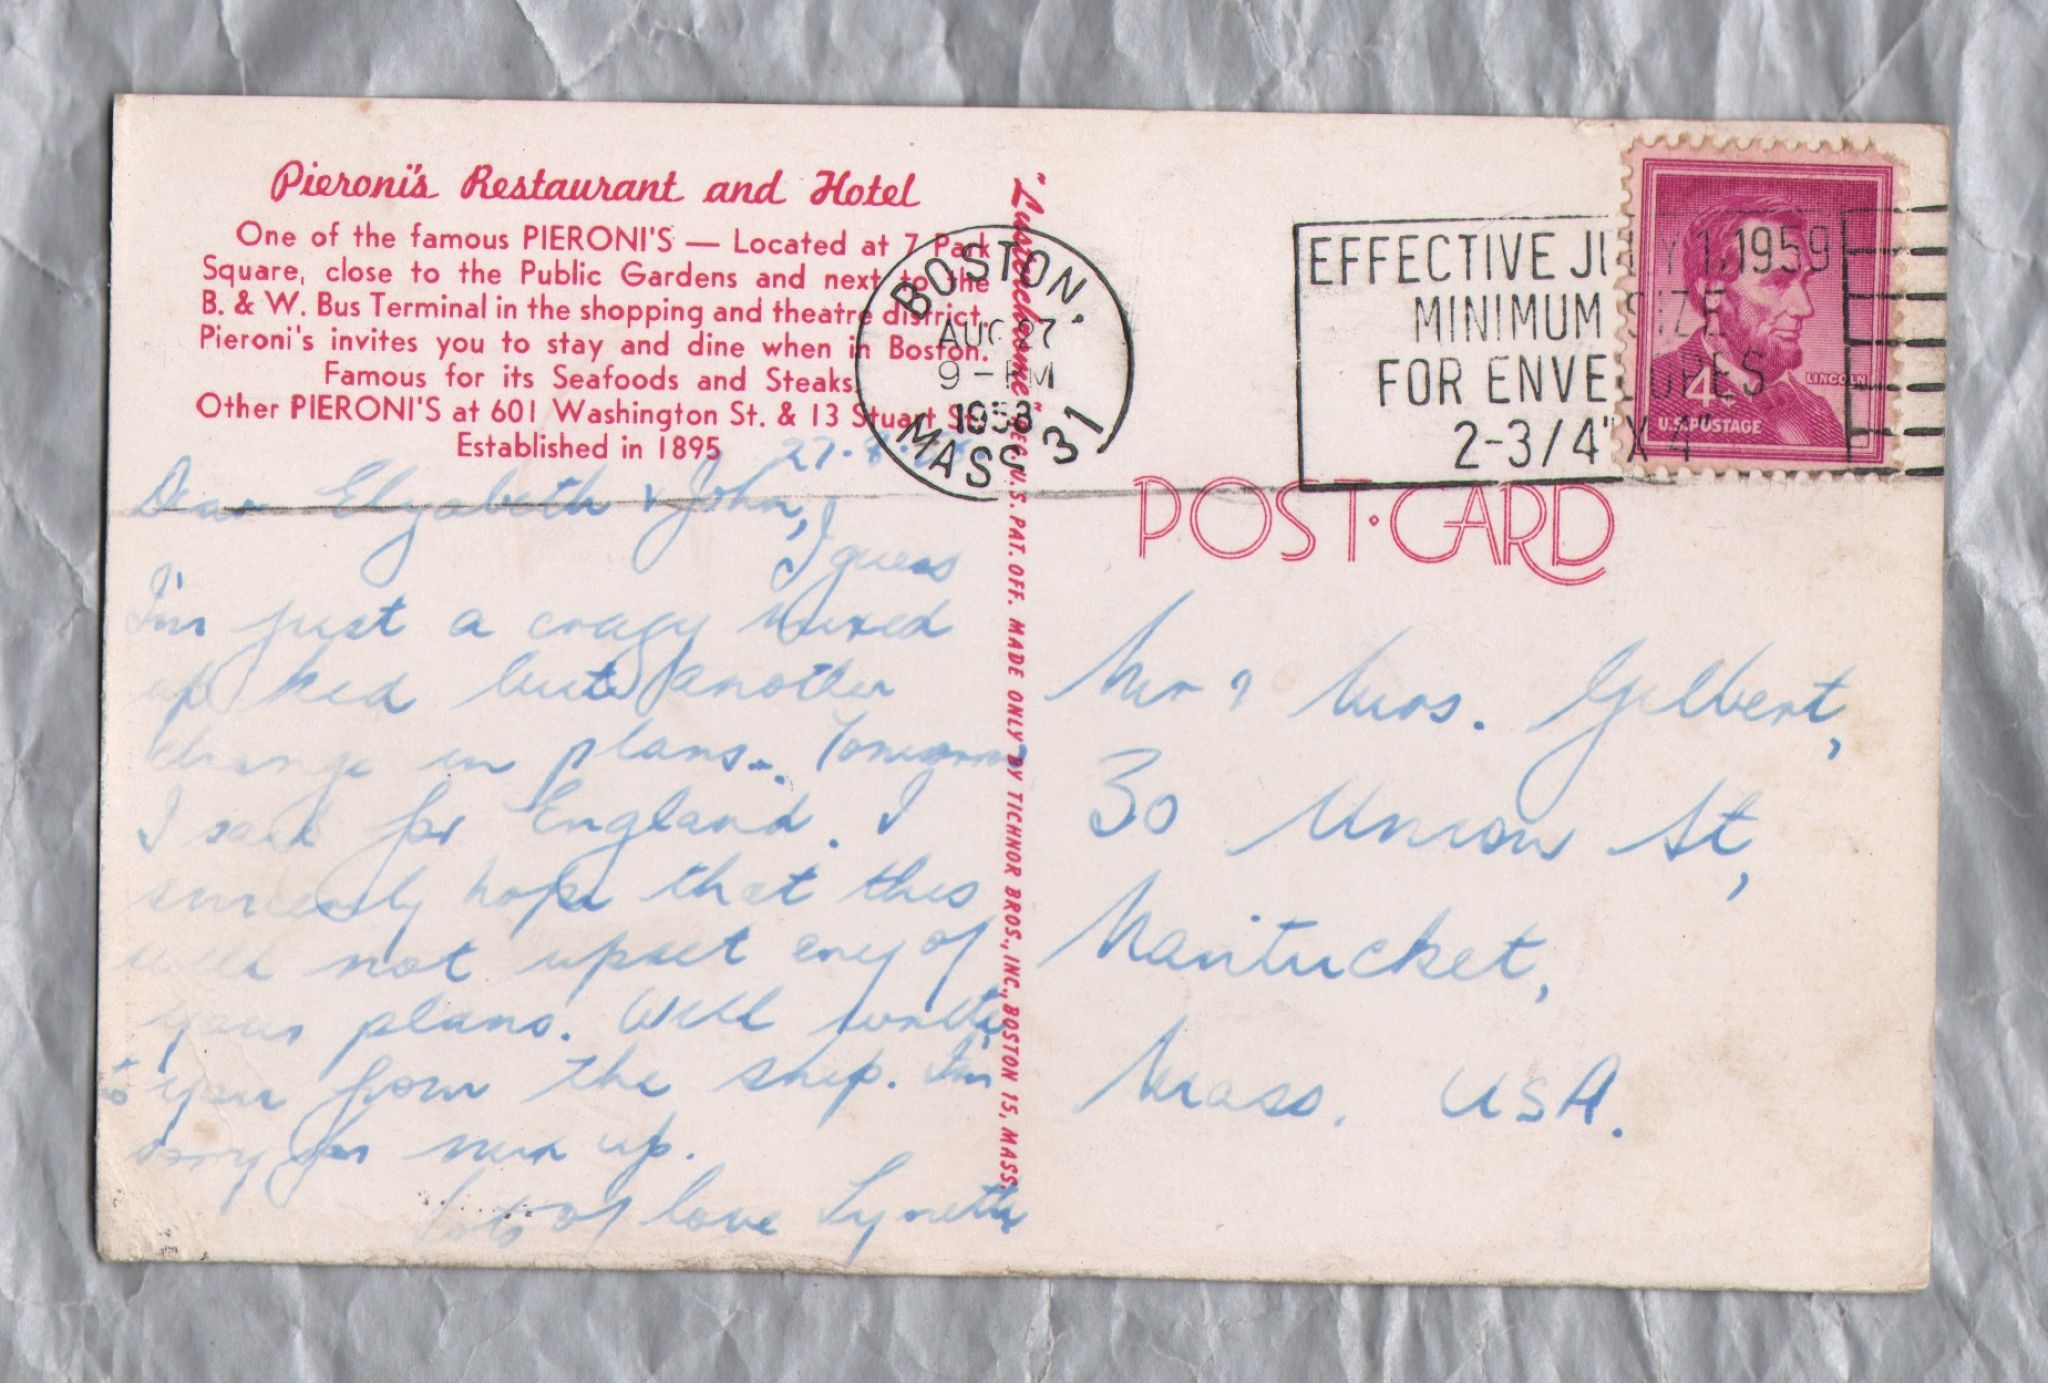 Pieroni's Restaurant and Hotel
One of the famous PIERONI'S — Located at 7 Park
Square, close to the Public Gardens and next to the
B. & W. Bus Terminal in the shopping and theatre district.
Pieroni's invites you to stay and dine when in Boston.
Famous for its Seafoods and Steaks.
Other PIERONI'S at 601 Washington St. & 13 Stuart St.
Established in 1895
Dear Elizabeth & John,
I guess
I'm just a crazy mixed
up kid but another
change in plans. Tomorrow
I sail for England. I
sincerely hope that this
will not upset any of
your plans. Will write
to you from the ship. I'm
sorry for mix up.
lots of love Lynette
"Lusterchrome" REG. U.S. PAT. OFF. MADE ONLY BY TICHNOR BROS., INC., BOSTON 15, MASS.
BOSTON,
AUG 27
9 - PM
1958
MASS 31
EFFECTIVE JULY 1, 1959
MINIMUM SIZE
FOR ENVELOPES
2-3/4" X 4"
LINCOLN
4¢
U.S. POSTAGE
POST·CARD
Mr & Mrs. Gilbert,
30 Union St,
Nantucket,
Mass. USA.